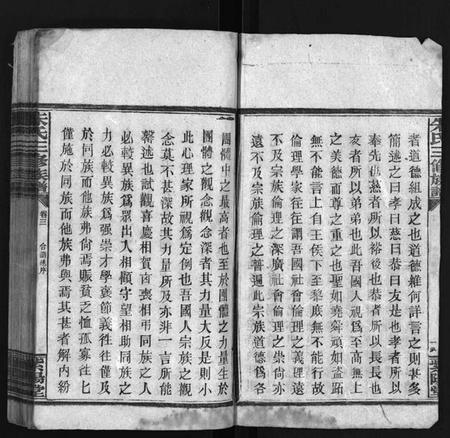 者道德組成之也道德維何詳言之則甚多
簡述之曰孝曰慈曰恭曰友是也孝者所以
奉先也慈者所以裕後也恭者所以長長也
友者所以弟弟也此吾國人視爲至高無上
之美德而尊之重之也聖如堯舜頑如盜跖
無不能言上自王侯下至黎庶無不能行故
倫理學家往往謂吾國社會倫理之義理遠
不及宗族倫理之深廣社會倫理之崇尚亦
遠不及宗族倫理之普遍此宗族道德爲各
團體中之最高者也至於團體之力量生於
團體之觀念觀念深者其力量大反是則小
此心理家所視爲定例也吾國人宗族之觀
念莫不甚深故其力量所及亦非一言所能
罄述也試觀喜慶相賀弔喪相弔同族之人
必較異族爲眾出入相顧守望相助同族之
力必較異族爲強崇才學褒節義往往僅及
於同族而他族弗尚焉賑貧乏恤孤寡往往
僅施於同族而他族弗與焉其甚者解內紛
朱氏三修族譜
卷三
合譜序